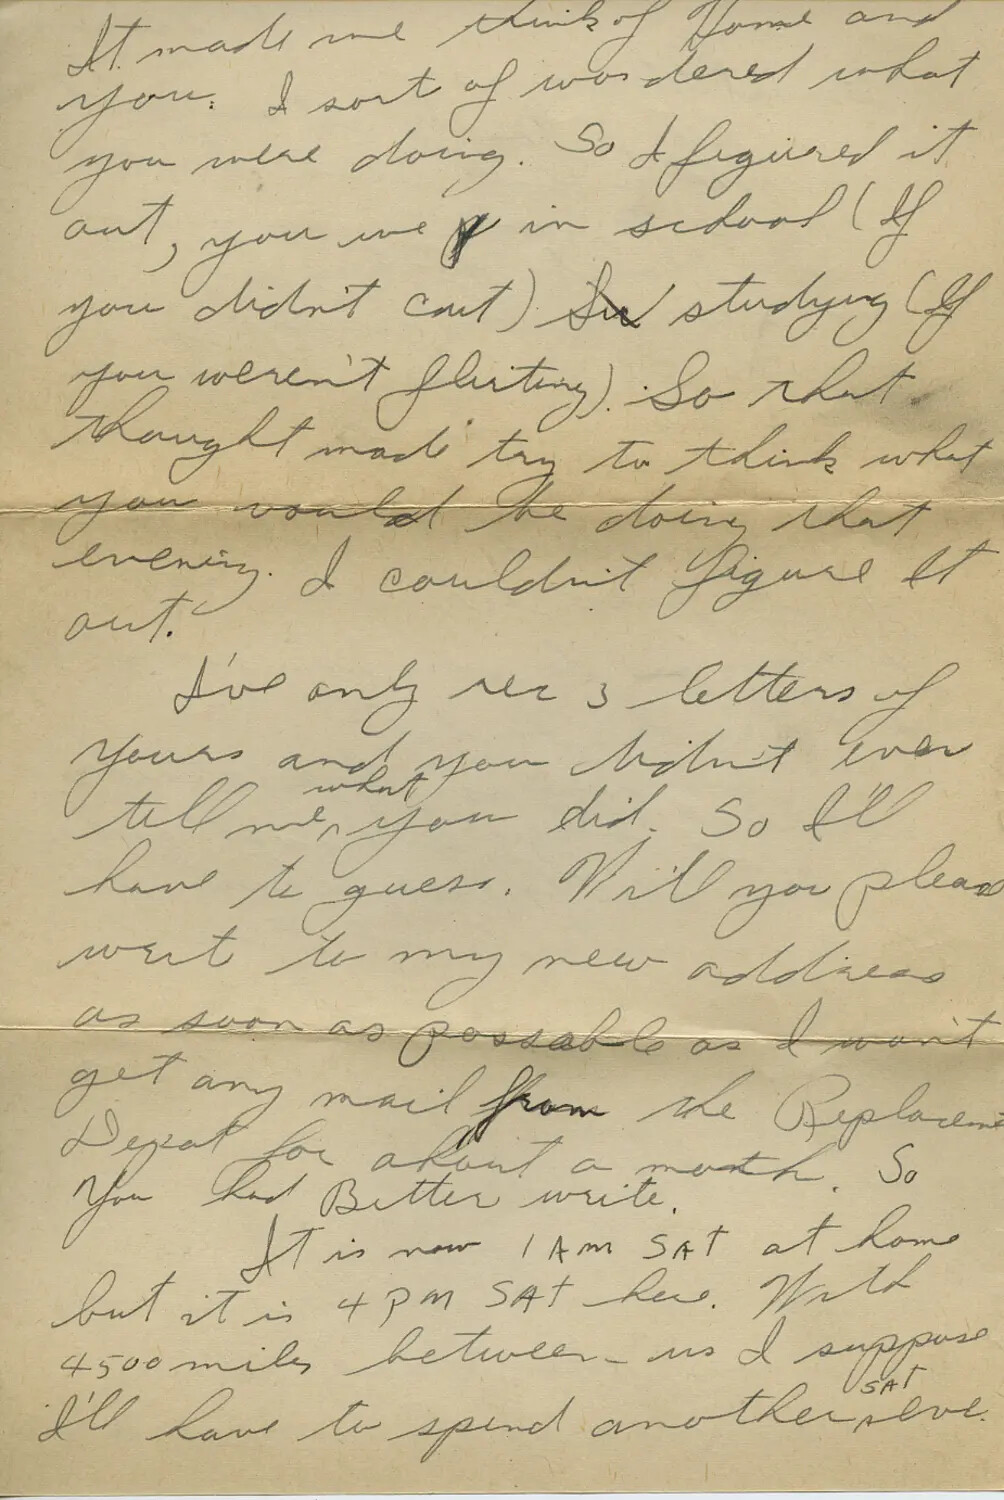 It made me think of Home and
you. I sort of wondered what
you were doing. So I figured it
out, you we in school (If
you didn't cut) studying (If
you weren't flirting). So that
thought made try to think what
you would be doing that
evening. I couldn't figure It
out.
I've only rec 3 letters of
yours and you didn't ever
tell me what you did. So I'll
have to guess. Will you please
writ to my new address
as soon as possable as I won't
get any mail from the Replacement
Depot for about a month. So
You had Better write.
It is now 1 AM SAT at home
but it is 4 PM SAT here. With
4500 miles between us I suppose
I'll have to spend another SAT eve.